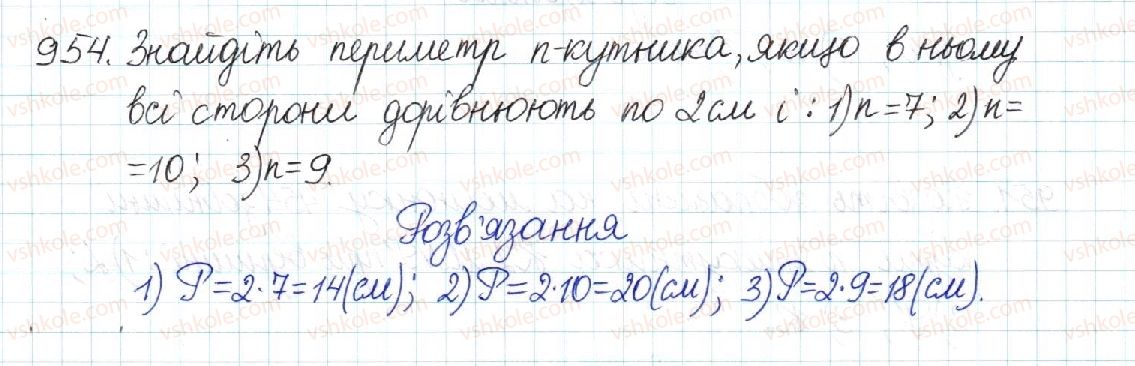 954. Знайдіть периметр n-кутника, якщо в ньому
всі сторони дорівнюють по 2 см і: 1) n=7; 2) n=
=10; 3) n=9.
Розв'язання
1) P=2·7=14(см); 2) P=2·10=20(см); 3) P=2·9=18(см).